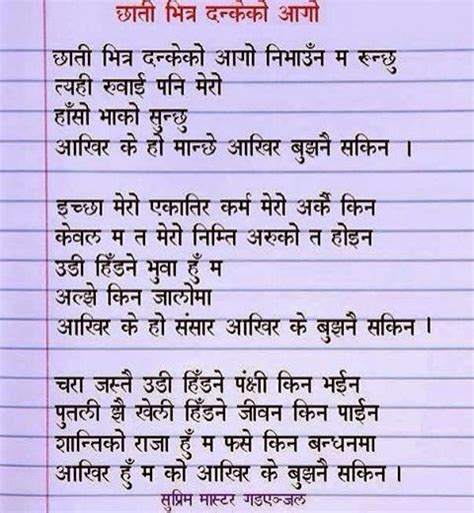 छाती भित्र दन्केको आगो
छाती भित्र दन्केको आगो निभाउँन म रून्छु
त्यही रुवाई पनि मेरो
हाँसो भाको सुन्छु
आखिर के हो मान्छे आखिर बुझनै सकिन ।
इच्छा मेरो एकातिर कर्म मेरो अर्कै किन
केवल म त मेरो निम्ति अरुको त होइन
उडी हिँडने भुवा हुँ म
अल्झे किन जालोमा
आखिर के हो संसार आखिर के बुझनै सकिन ।
चरा जस्तै उडी हिँडने पंक्षी किन भईन
पुतली झै खेली हिँडने जीवन किन पाईन
शान्तिको राजा हुँ म फसे किन बन्धनमा
आखिर हुँ म को आखिर के बुझनै सकिन ।
सुप्रिम मास्टर गडएञ्जल